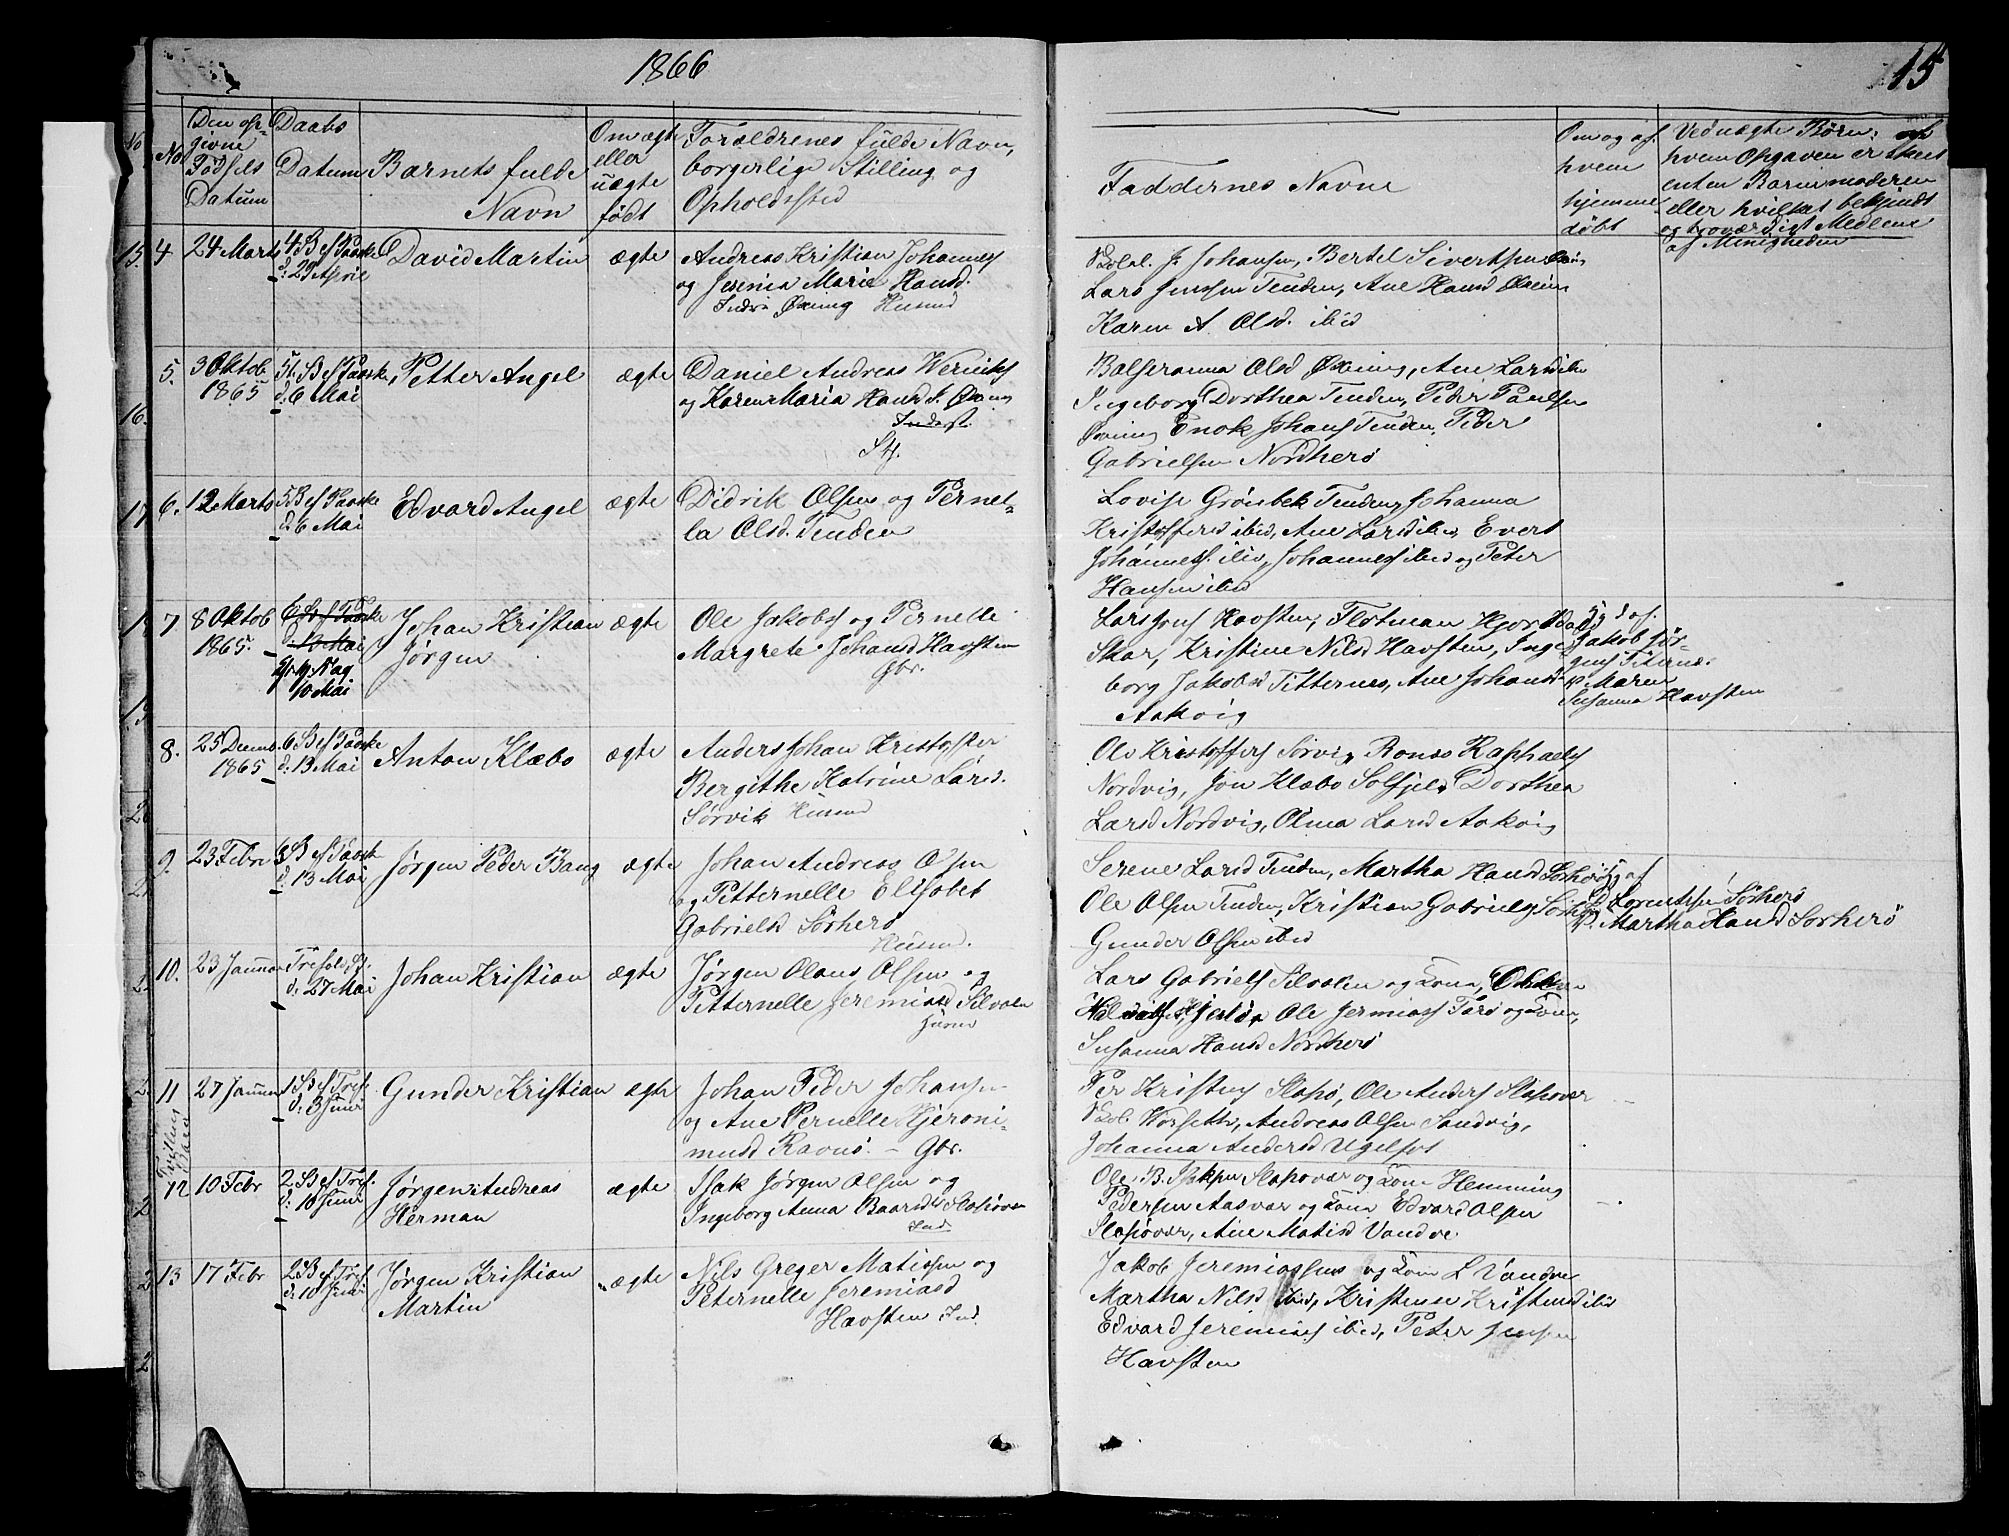 1866
15
No
Den op-
givne
Fødsels
Datum
Daabs
Datum
Barnets fulde
Navn
Om ægte
eller
uægte
født
Forældrenes fulde Navn,
borgerlige Stilling og
Opholdssted
Faddernes Navne
Om og af
hvem
hjemme-
døbt
Ved uægte Børn: af
hvem Opgaven er skeet
enten Barnemoderen
eller hvilket bekjendt
og troværdigt Medlem
af Menigheden
4
24 Marts
4 S ef Paaske
d: 29 April
David Martin
ægte
Andreas Kristian Johannes
og Jerenia Marie Hansd.
Øxning Husmd
J. Johansen, Bertel Sivertsen
Lars Jensen Tenden, Ane Hansd
Karen A. Olsd. ibid
5.
3 Oktob
1865
5t. S ef Paaske
d: 6 Mai
Petter Angel
ægte
Daniel Andreas
og Karen Maria Hansd.
Olsd Øxning, Ane Larsd ibn
Ingeborg Dorthea Tenden, Peder Paulsen
Øxning Enok Johans Tenden, Peder
Gabrielsen Nordherø
6.
12 Marts
5 S ef Paaske
d: 6 Mai
Edvard Angel
ægte
Didrik Olsen og Pernel-
la Olsd. Tenden
Lovise Grönbek Tenden, Johanna
Kristoffersd ibid, Ane Larsd ibn, Evert
Johanness. ibid, Johanness ibid og Peter
Hansen ibid
7
8 Oktob
1865.
d. 10 Mai
10 Mai
Johan Kristian
Jørgen
ægte
Ole Jakobs og Pernelle
Margrete Johansd Havsten
Gbr.
Lars Jens Havsten, Flotman
Skar, Kristine Nilsd Havsten, Inge-
borg Jakobsd Titternes, Ane Johansd
Aakvig
Jakob Jør-
gens Titernes
Maren
Susanna Havsten
8.
25 Decmb.
1865
6 S ef Paaske
d: 13 Mai
Anton Klæbo
ægte
Anders Johan Kristoffer
Bergithe Katrine Larsd.
Sørvik Husmd
Ole Kristoffers Sørvig, Rones Raphaels
Nordvig, Jon Klæbo Solfjeld, Dorthea
Larsd Nordvig, Olina Larsd Aakvig
9.
23 Febr
6 S ef Paaske
d. 13 Mai
Jørgen Peder Bang
ægte
Johan Andreas Olsen
og Pitternelle Elisabet
Gabrielsd Sørherø
Husmd.
Serene Larsd Tenden, Martha Hansd Sørherø
Ole Olsen Tenden, Kristian Gabriels Sørherø
Gunder Olsen ibid
af
Lorentsen Sørherø
Martha Hansd Sørherø
10.
23 Januar
d. 27 Mai
Johan Kristian
ægte
Jørgen Olaus Olsen og
Pitternelle Jeremiasd Silvalen
Husmd
Lars Gabriels Silvalen og Kona,
Ole Jermiass Farø og Kona,
Susanna Hansd Nordherø
11
27 Januar
1 S ef Tref.
d. 3 Juni
Gunder Kristian
ægte
Johan Peder Johansen
og Ane Pernelle Hjeroni-
musd Ravnø. – Gbr.
Per Kristens Slapø, Ole Anders Slapøvær
Horseth, Andreas Olsen Sandvig,
Johanna Andersd Ugelsot
Tvilling
12
10 Febr
2. S ef Tref.
d. 10 Juni
Jørgen Andreas
Herman
ægte
Isak Jørgen Olsen og
Ingeborg Anna Baardsd Slapøvær
Ind
Ole B. Slapøvær og Kone Hemming
Pedersen Aasvær og Kona Edvard Olsen
Slapøvær, Ane Matisd Vandve
13
17 Febr
2 S ef Tref
d. 10 Juni
Jørgen Kristian
Martin
ægte
Nils Greger Matissen og
Peternelle Jeremiasd
Havsten Ind.
Jakob Jeremiassens og Kone L Vandve
Martha Nilsd ibid, Kristense Kristensd ibid
Edvard Jeremiass ibid, Peter Jensen
Havsten